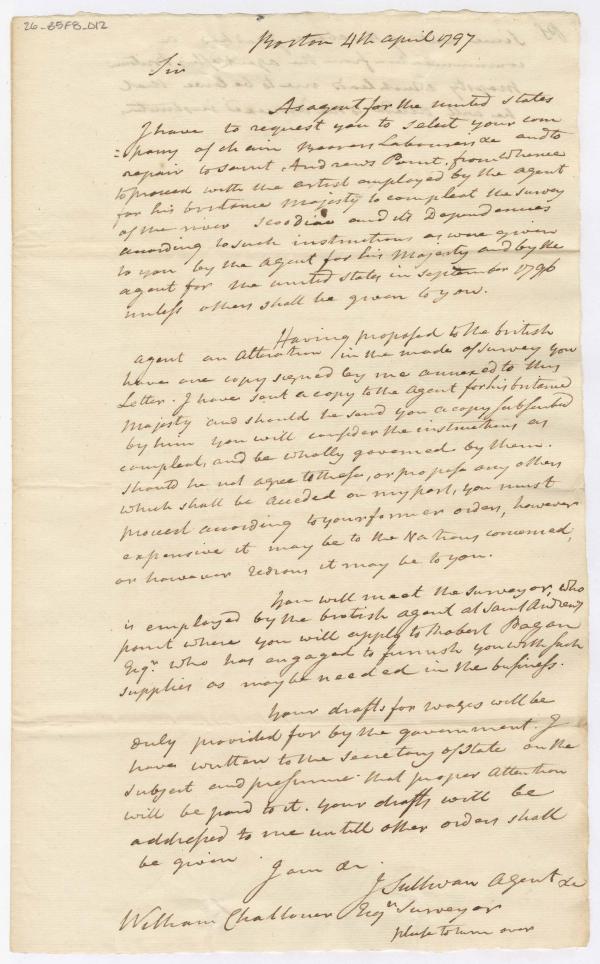 26-85FB_D12
Boston 4th april 1797
Sir
As agent for the united states
I have to request you to select your com
=pany of chain Bearers Labourers &c and to
repair to saint Andrews Point, from whence
to proceed with the artist employed by the agent
for his britanic Majesty to compleat the survey
of the river Scoodiac and its Dependences
acording to such instructions as were given
to you by the agent for his Majesty and by the
agent for the united states in september 1796
unless others shall be given to you.
Having proposed to the british
agent an Alteration in the mode of survey you
have one copy signed by me annexed to this
Letter. I have sent a copy to the Agent for his britanic
Majesty and should he send you a copy subscribed
by him you will consider the instructions as
compleat, and be wholly governed by them.
should he not agree to these, or propose any others
which shall be acceded on my part, you must
proceed according to your former orders, however
expensive it may be to the Nations concerned,
or however tedious it may be to you.
You will meet the surveyor, who
is employed by the british agent at Saint Andrews
point where you will apply to Robert Pagan
Esqr. who has engaged to furnish you with such
supplies as may be needed in the business.
Your drafts for wages will be
duly provided for by the government. I
have written to the secretary of State on the
subject and presume that proper attention
will be paid to it. your drafts will be
addressed to me untill other orders shall
be given. I am &c.
J Sullivan Agent &c
William Challoner Esqr Surveyor
please to turn over